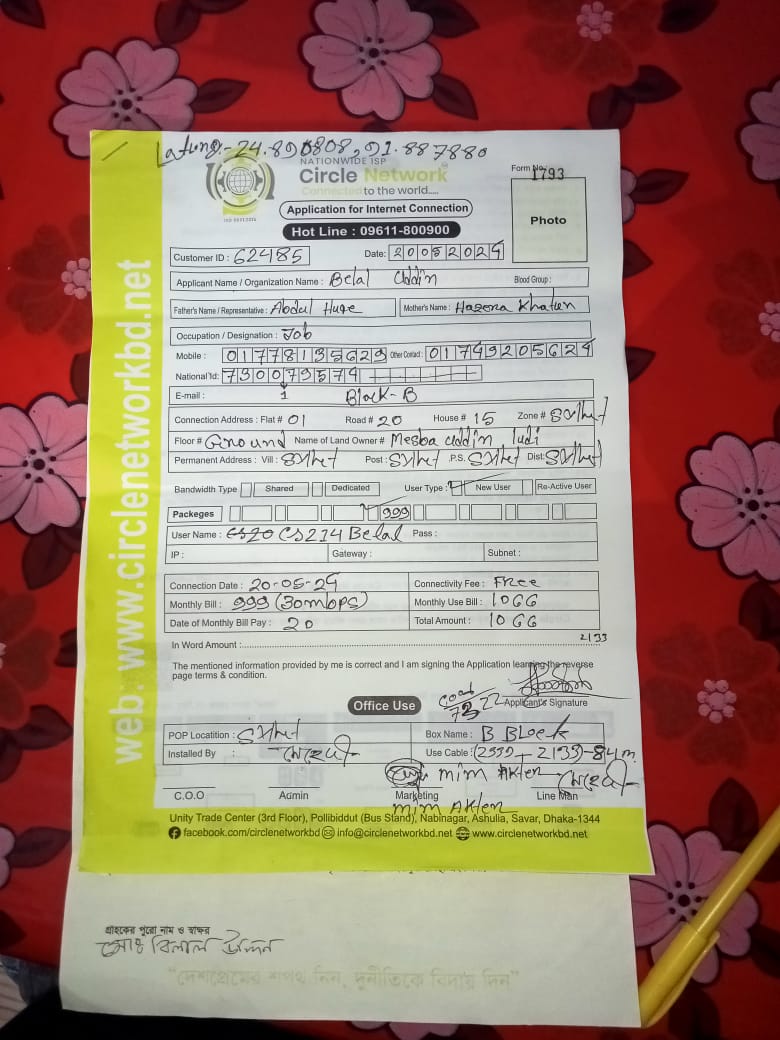 24.890808, 91.887880
NATIONWIDE ISP
Circle Network
Connected to the world....
Form No: 1793
Photo
Application for Internet Connection
Hot Line : 09611-800900
Customer ID : 62485 Date: 20052024
Applicant Name / Organization Name : Belal Uddin Blood Group :
Father's Name / Representative : Abdul Huqe Mother's Name : Hazera Khatun
Occupation / Designation : Job
Mobile : 01778135629 Other Contact : 01749205624
National Id: 7300793574
E-mail : Block-B
Connection Address : Flat # 01 Road # 20 House # 15 Zone # Sylhet
Floor # Ground Name of Land Owner # Mesba Uddin
Permanent Address : Vill : Sylhet Post : Sylhet P.S. Sylhet Dist: Sylhet
Bandwidth Type Shared Dedicated User Type : New User Re-Active User
Packeges 999
User Name : Belal Pass :
IP : Gateway : Subnet :
Connection Date : 20-05-24 Connectivity Fee : Free
Monthly Bill : 999 (30mbps) Monthly Use Bill : 1066
Date of Monthly Bill Pay : 20 Total Amount : 1066
In Word Amount : 2133
The mentioned information provided by me is correct and I am signing the Application learning the reverse
page terms & condition.
Applicant's Signature
Office Use
POP Locatition : Sylhet Box Name : B Block
Installed By : Use Cable : (2552 - 2133)-84 m.
mim Akter
C.O.O Admin Marketing Line Man
mim Akter
Unity Trade Center (3rd Floor), Pollibiddut (Bus Stand), Nabinagar, Ashulia, Savar, Dhaka-1344
facebook.com/circlenetworkbd info@circlenetworkbd.net www.circlenetworkbd.net
web: www.circlenetworkbd.net
গ্রাহকের পুরো নাম ও স্বাক্ষর
মোঃ বিলাল উদ্দিন
"দেশপ্রেমের শপথ নিন, দুর্নীতিকে বিদায় দিন"